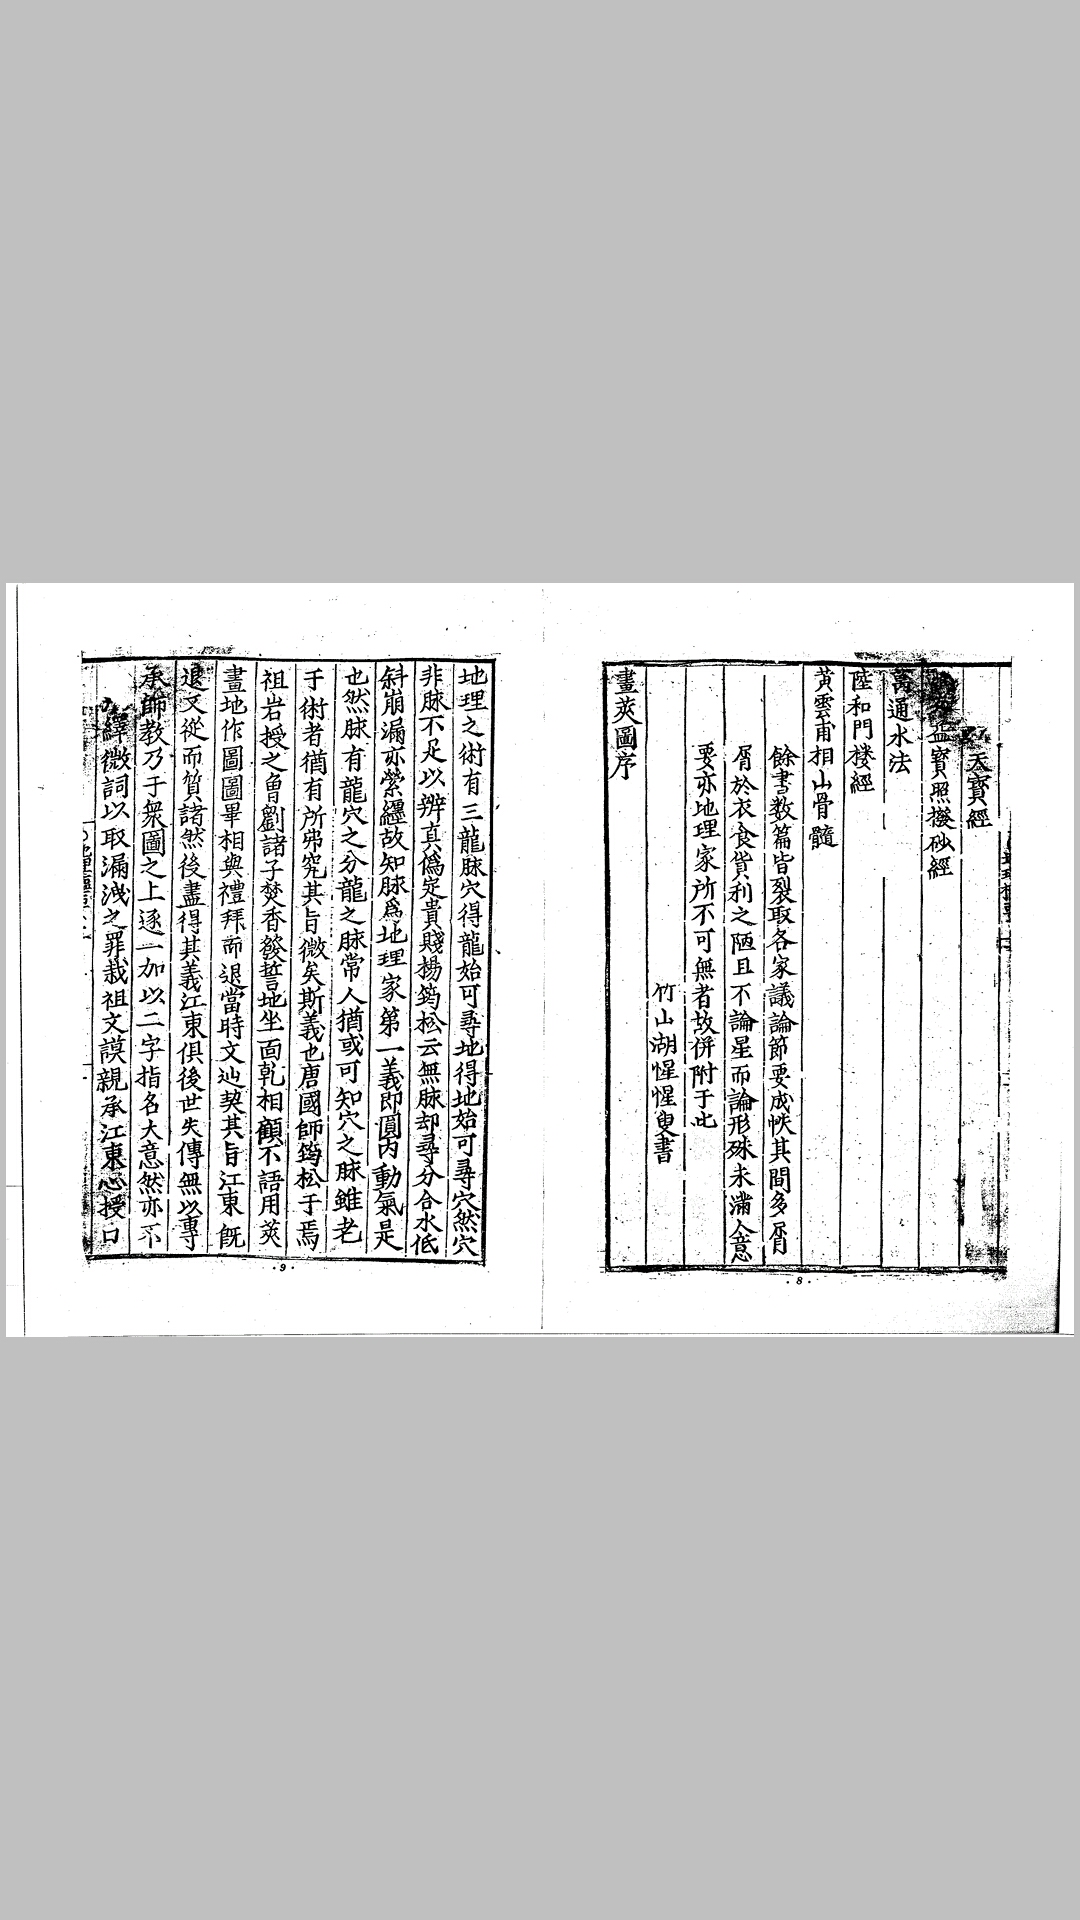 天寶經
寶照撥砂經
通水法
陸和門摟經
黃雲甫相山骨髓
餘書数篇皆裂取各家議論節要成帙其間多屑
屑於衣食貨利之陋且不論星而論形殊未滿人意
要亦地理家所不可無者故併附于此
竹山湖惺惺叟書
畫莢圖序
·8·
地理之術有三龍脉穴得龍始可尋地得地始可尋穴然穴
非脉不足以辨真偽定貴賤楊筠松云無脉却尋分合水低
斜崩漏亦縈纒故知脉爲地理家第一義即圓内動氣是
也然脉有龍穴之分龍之脉常人猶或可知穴之脉雖老
于術者猶有所弗究其旨微矣斯義也唐國師筠松于焉
祖岩授之曾劉諸子焚香發誓地坐面乾相顧不語用莢
畫地作圖圖畢相與禮拜而退當時文辿契其旨江東旣
退又從而質諸然後盡得其義江東俱後世失傳無以專
承師教乃于衆圖之上逐一加以二字指名大意然亦不
繹微詞以取漏洩之罪哉祖文謨親承江東心授口
·9·